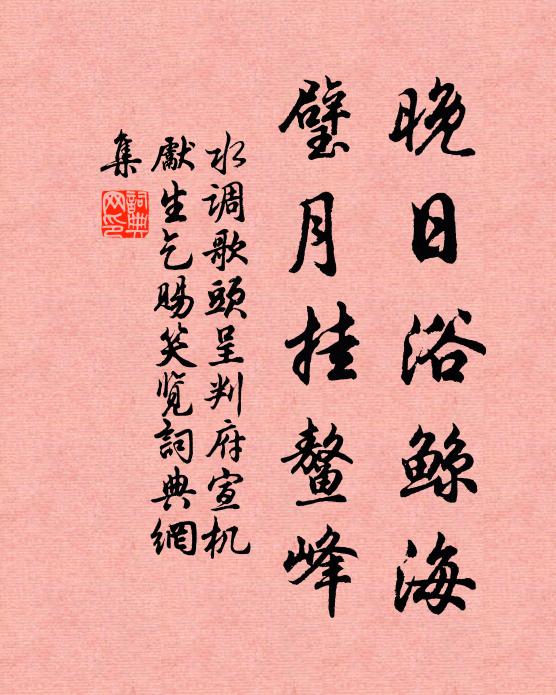 晚日浴鲸海
璧月挂鳌峰
水调歌頭呈判府宣机
獻生乞賜笑覧詞典網
集
詞典网印